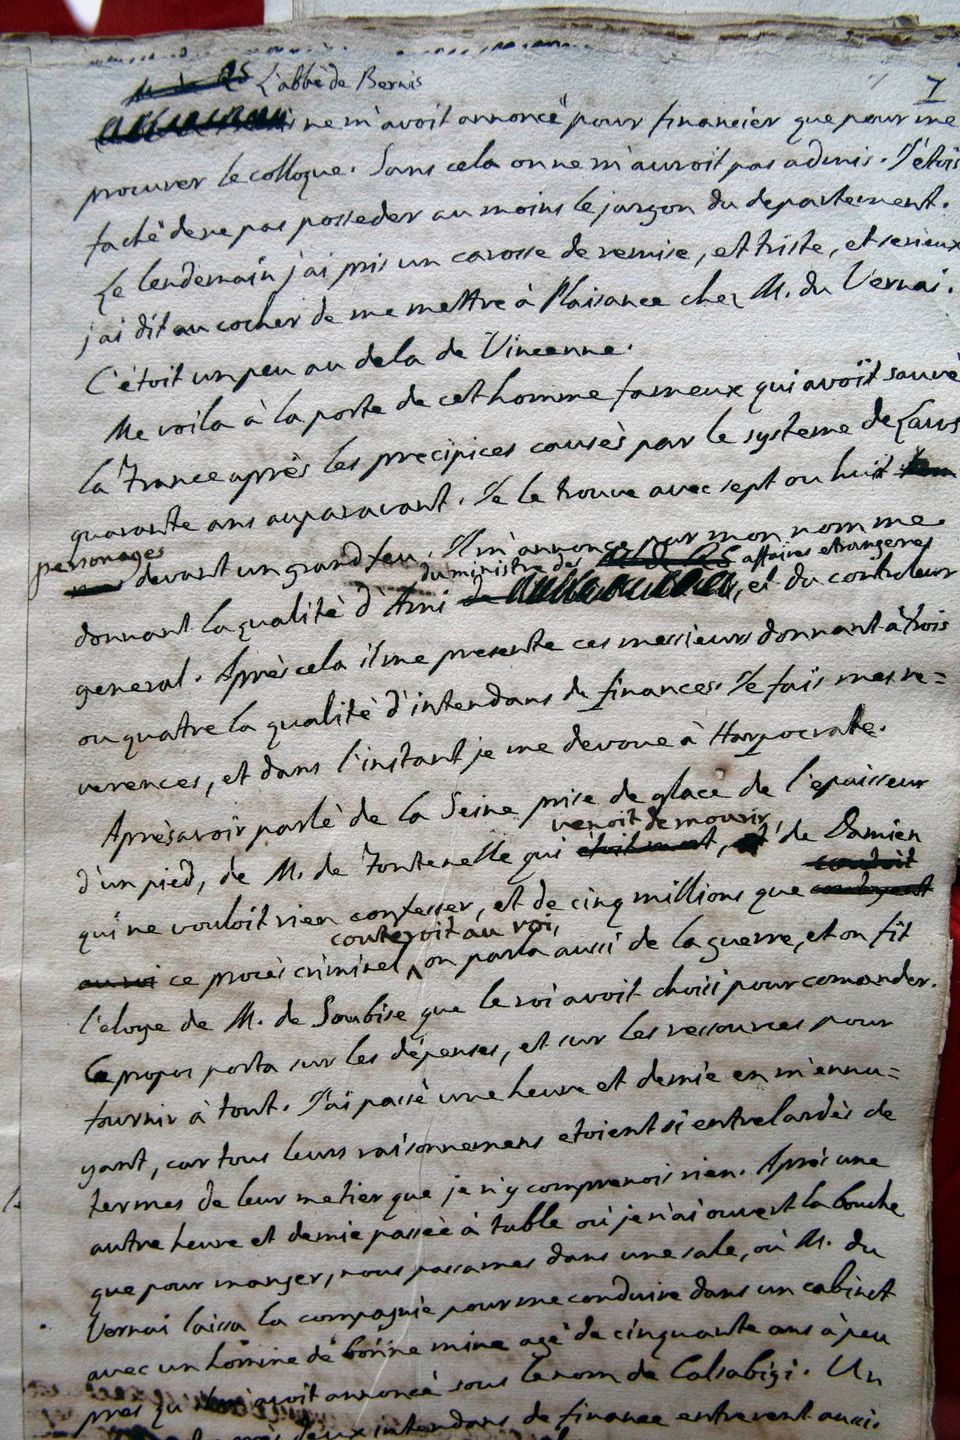 L'abbè de Bernis
7
ne m'avoit annoncè pour financier que pour me
procurer le colloque. Sans cela on ne m'auroit pas admis. J'etois
fachè de ne pas posseder au moins le jargon du departement.
Le lendemain j'ai pris un carosse de remise, et triste, et serieux
j'ai dit au cocher de me mettre à Plaisance chez M. du Vernai.
C'ètoit un peu au dela de Vincenne.
Me voila à la porte de cet homme fameux qui avoit sauvè
la France après les precipices causès par le systeme de Laws
quarante ans auparavant. Je le trouve avec sept ou huit
personages devant un grand feu. Il m'annonce par mon nom me
du ministre des affaires etrangeres
donnant la qualitè d'Ami , et du controleur
general. Après cela il me presente ces messieurs donnant à trois
ou quatre la qualitè d'intendans de finances. Je fais mes re=
verences, et dans l'instant je me devoue à Harpocrate.
Après avoir parlè de la Seine prise de glace de l'epaisseur
venoit de mourir,
d'un pied, de M. de Fontenelle qui etoit mort, et de Damien
qui ne vouloit rien confesser, et de cinq millions que
couteroit au roi,
au roi ce procès criminel on parla aussi de la guerre, et on fit
l'eloge de M. de Soubise que le roi avoit choisi pour comander.
Ce propos porta sur les dèpenses, et sur les ressources pour
fournir à tout. J'ai passè une heure et demie en m'ennu=
yant, car tous leurs raisonnemens etoient si entrelardès de
termes de leur metier que je n'y comprenois rien. Après une
autre heure et demie passèe à table où je n'ai ouvert la bouche
que pour manger, nous passames dans une sale, où M. du
Vernai laissa la compagnie pour me conduire dans un cabinet
avec un homme de bonne mine agè de cinquante ans à peu
près qu'il m'avoit annoncè sous le nom de Calsabigi. Un
deux intendans de finance entrerent aussi.